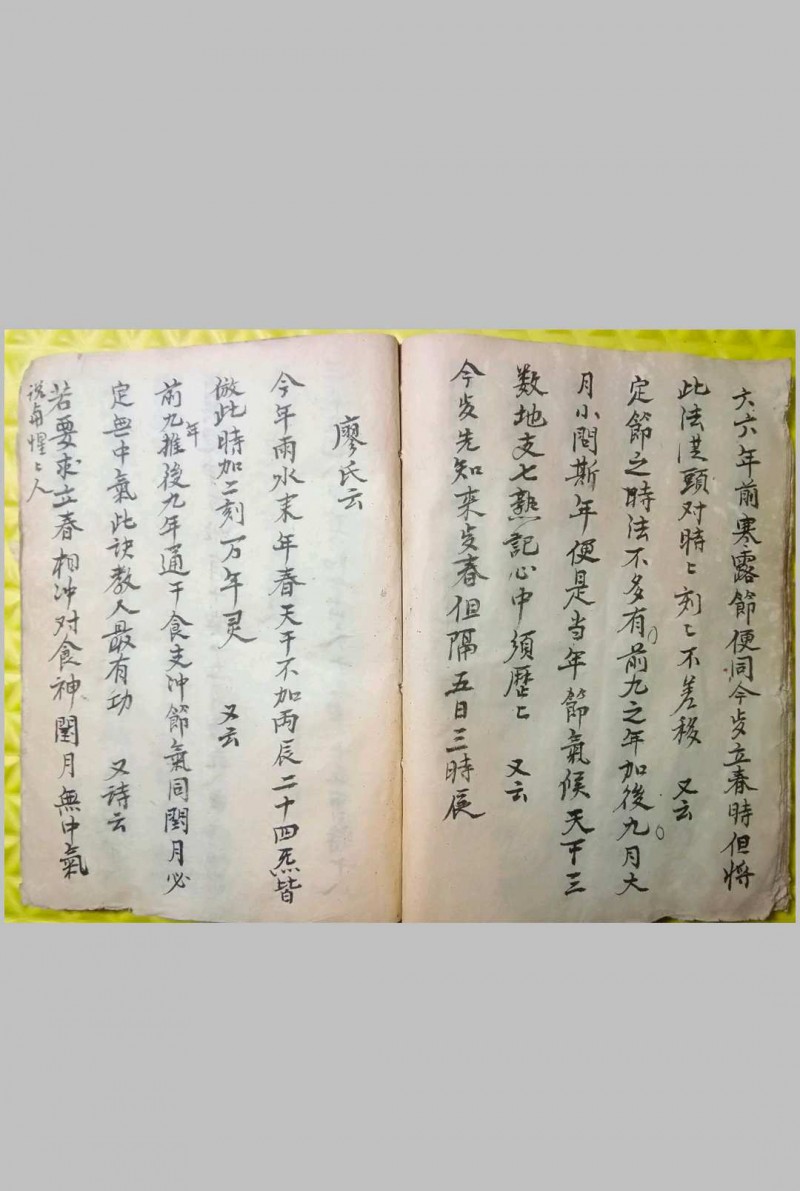 六六年前寒露節便同今歲立春時但將
此法洪頭对時〻刻〻不差移 又云
定節之時法不多有前九之年加後九月大
月小問斯年便是当年節氣候天干三
数地支七熟記心中須歷〻 又云
今歲先知來歲春但隔五日三時辰
廖氏云
今年雨水来年春天干不加丙辰二十四炁皆
倣此時加二刻万年灵 又云
前九年推後九年通干食支沖節氣同閏月必
定無中氣此訣教人最有功 又詩云
若要求立春相沖对食神閏月無中氣
説与惺〻人